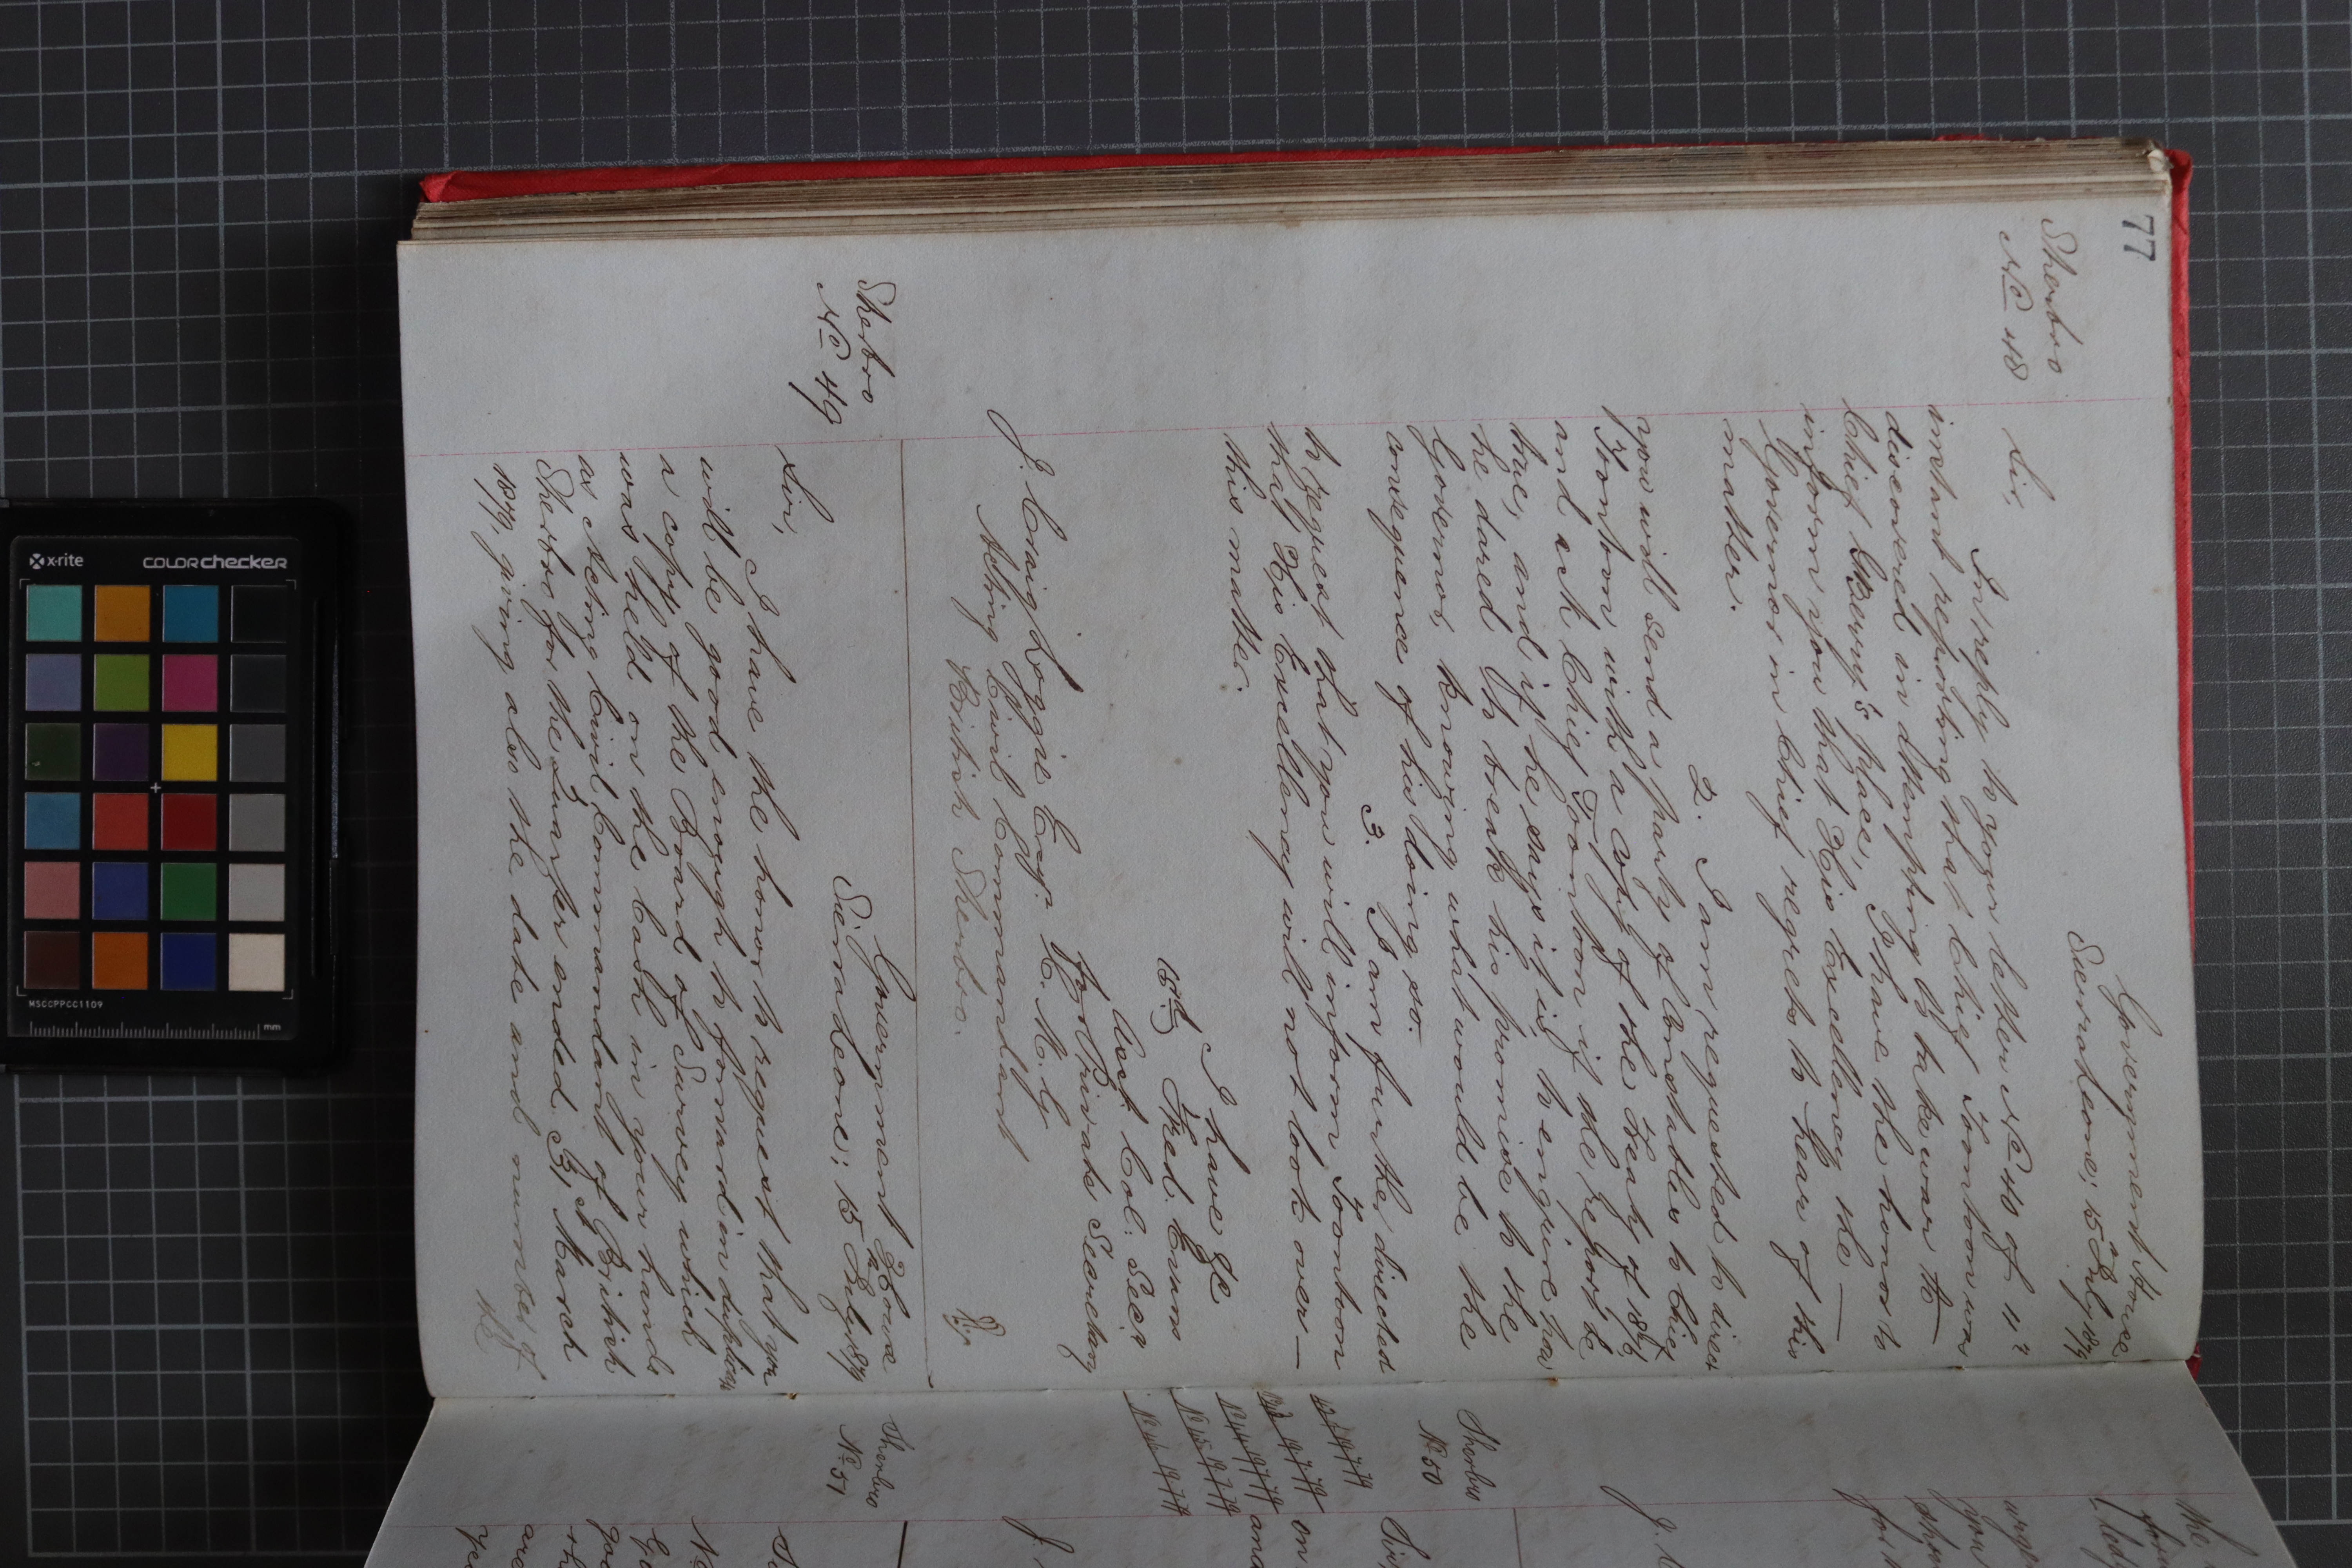 77
Sherbro
No 48
Government House
Sierra Leone; 15 July 1879
Sir,
In reply to your letter No 40 of 11th
instant reporting that Chief Toontoon was
discovered in attempting to take war to
Chief Gberry's place, I have the honor to
inform you that His Excellency the
Governor in Chief regrets to hear of this
matter.
2. I am requested to direct
you will send a party of Constables to Chief
Toontoon with a copy of the Treaty of
and ask Chief Toontoon if the report be
true, and if he says it is, to enquire how
he dared to break his promise to the
Governor, knowing what would be the
consequence of his doing so.
3. I am further directed
to request that you will inform Toontoon
that His Excellency will not look over
this matter.
I have &c
Fred. Evans
Asst. Col: Secy
for Private Secretary
J. Craig Loggie Esqr. C. M. G
Acting Civil Commandant
British Sherbro.
Sherbro
No 49
Government House
Sierra Leone; 15 July 1879
Sir,
I have the honor to request that you
will be good enough to forward in duplicate
a copy of the Board of Survey which
was held on the Cash in your hands
as Acting Civil Commandant of British
Sherbro for the Quarter ended 31st March
1879, giving also the date and number of
the
Sherbro
No 50
Sherbro
No 51
Sir,
on
and
J.
the
for
you